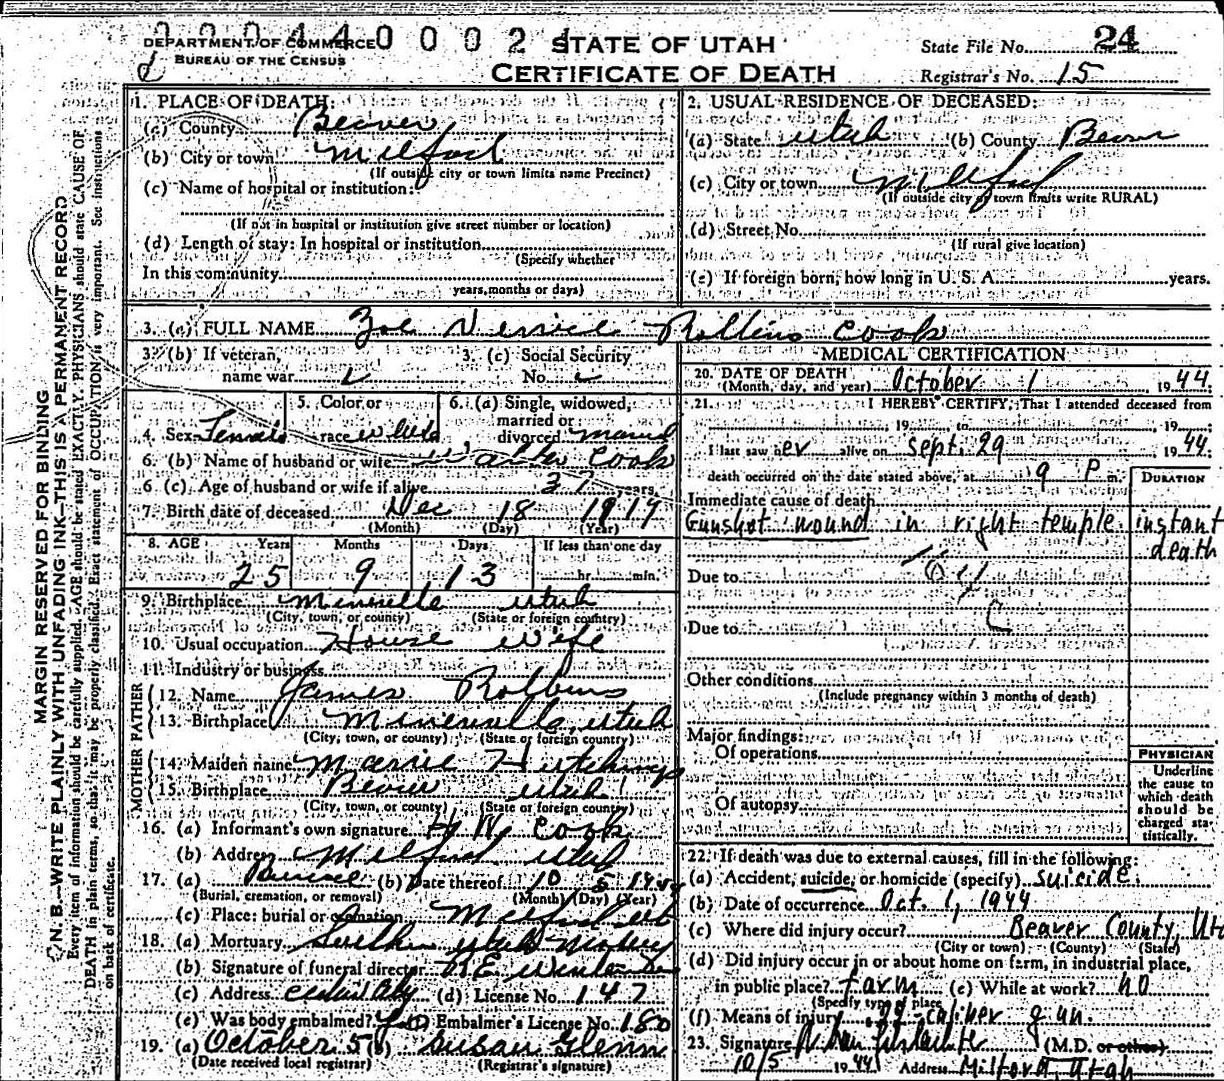 0 0 0 4 4 0 0 0 2 4
DEPARTMENT OF COMMERCE
BUREAU OF THE CENSUS
STATE OF UTAH
CERTIFICATE OF DEATH
State File No. 24
Registrar's No. 15
MARGIN RESERVED FOR BINDING
N. B.—WRITE PLAINLY WITH UNFADING INK—THIS IS A PERMANENT RECORD
Every item of information should be carefully supplied. AGE should be stated EXACTLY. PHYSICIANS should state CAUSE OF
DEATH in plain terms, so that it may be properly classified. Exact statement of OCCUPATION is very important. See instructions
on back of certificate.
1. PLACE OF DEATH:
(a) County Beaver
(b) City or town Milford
(If outside city or town limits name Precinct)
(c) Name of hospital or institution:
(If not in hospital or institution give street number or location)
(d) Length of stay: In hospital or institution
(Specify whether
In this community
years, months or days)
2. USUAL RESIDENCE OF DECEASED:
(a) State Utah (b) County Beaver
(c) City or town Milford
(If outside city or town limits write RURAL)
(d) Street No.
(If rural give location)
(e) If foreign born, how long in U. S. A. years.
3. (a) FULL NAME Zoe Rollins Cook
3. (b) If veteran,
name war
3. (c) Social Security
No.
4. Sex Female
5. Color or
race white
6. (a) Single, widowed,
married or
divorced married
6. (b) Name of husband or wife Walter Cook
6 (c). Age of husband or wife if alive 37 years.
7. Birth date of deceased Dec 18 1919
(Month) (Day) (Year)
8. AGE Years Months Days If less than one day
25 9 13 hr. min.
9. Birthplace Minersville Utah
(City, town, or county) (State or foreign country)
10. Usual occupation House wife
11. Industry or business
FATHER
12. Name James Rollins
13. Birthplace Minersville, Utah
(City, town, or county) (State or foreign country)
MOTHER
14. Maiden name Hutchings
15. Birthplace Beaver Utah
(City, town, or county) (State or foreign country)
16. (a) Informant's own signature H W Cook
(b) Address Milford Utah
17. (a) Burial (b) Date thereof 10 5 1944
(Burial, cremation, or removal) (Month) (Day) (Year)
(c) Place: burial or cremation Milford Ut
18. (a) Mortuary Southern Utah Mortuary
(b) Signature of funeral director
(c) Address Cedar City (d) License No. 147
(e) Was body embalmed? Yes Embalmer's License No. 180
19. (a) October 5 (b) Susan Glenn
(Date received local registrar) (Registrar's signature)
MEDICAL CERTIFICATION
20. DATE OF DEATH
(Month, day, and year) October 1 1944.
21. I HEREBY CERTIFY, That I attended deceased from
19 to 19
I last saw her alive on Sept. 29 1944.
death occurred on the date stated above, at 9 P m.
DURATION
Immediate cause of death
Gunshot wound in right temple instant
death
Due to
Due to
Other conditions
(Include pregnancy within 3 months of death)
Major findings:
Of operations
Of autopsy
PHYSICIAN
Underline
the cause to
which death
should be
charged sta-
tistically.
22. If death was due to external causes, fill in the following:
(a) Accident, suicide, or homicide (specify) suicide.
(b) Date of occurrence Oct. 1, 1944
(c) Where did injury occur? Beaver County, Uta
(City or town) (County) (State)
(d) Did injury occur in or about home on farm, in industrial place,
in public place? farm (e) While at work? no
(Specify type of place)
(f) Means of injury .22-caliber gun.
23. Signature (M.D. or other)
10/5 1944 Address Milford, Utah